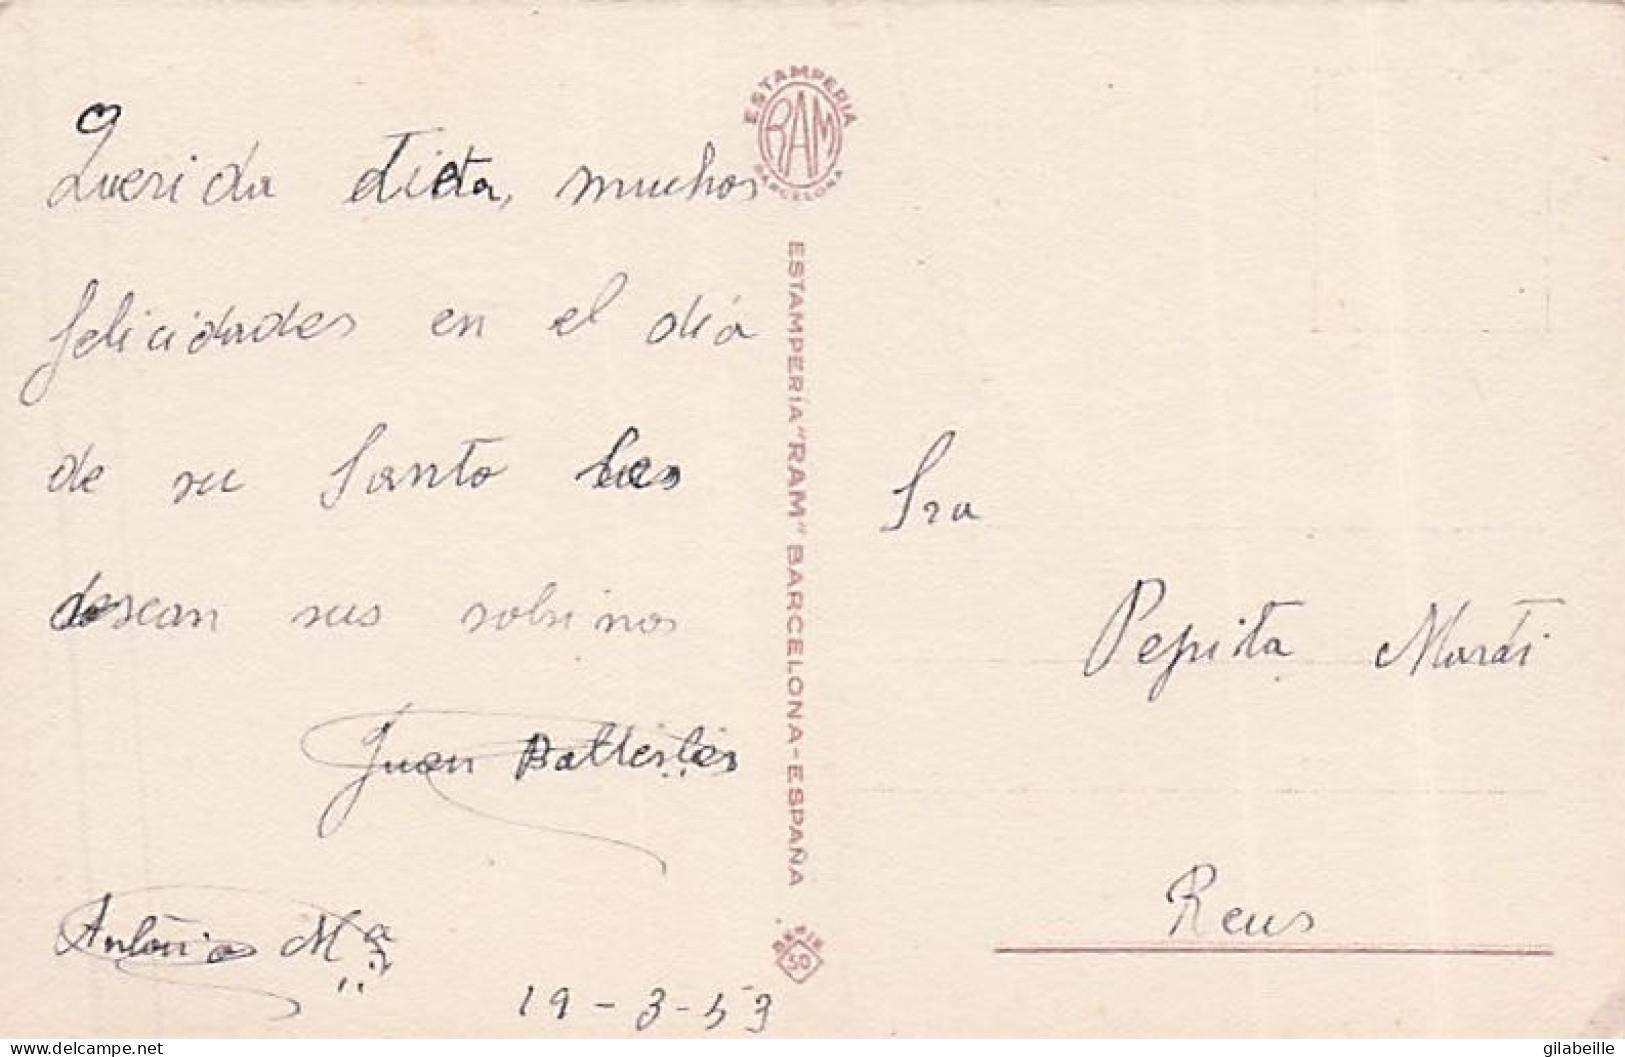 Querida tieta, muchas
felicidades en el día
de su Santo les
desean sus sobrinos
Juan Batlle
Antonio Mª
19-3-53
ESTAMPERIA
RAM
BARCELONA
ESTAMPERIA "RAM" BARCELONA-ESPAÑA
SERIE
50
Sra
Pepita
Reus
www.delcampe.net
gilabeille